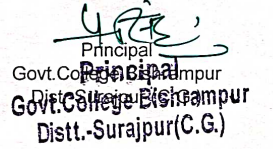 Principal
Govt.College,Bishrampur
Dist-Surajpur(C.G.)
Principal
Govt.College Bishrampur
Distt.-Surajpur(C.G.)